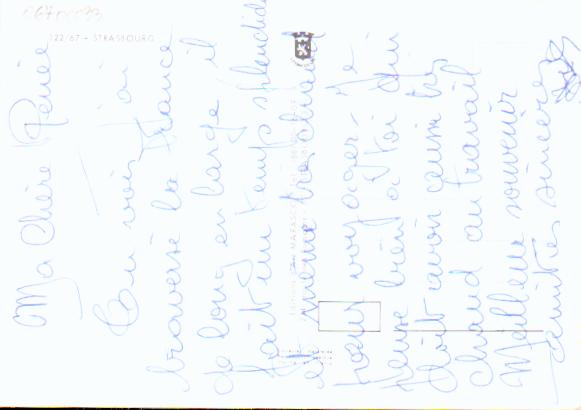 067
122/67 - STRASBOURG
Ma Chère Renée
Tu vois j'ai
traversé la France
de long en large il
fait un temps splendide
et même très chaud
pour voyager. Je
pense bien à toi qui
doit avoir aussi très
chaud au travail
Meilleur souvenir
amitiés sincères